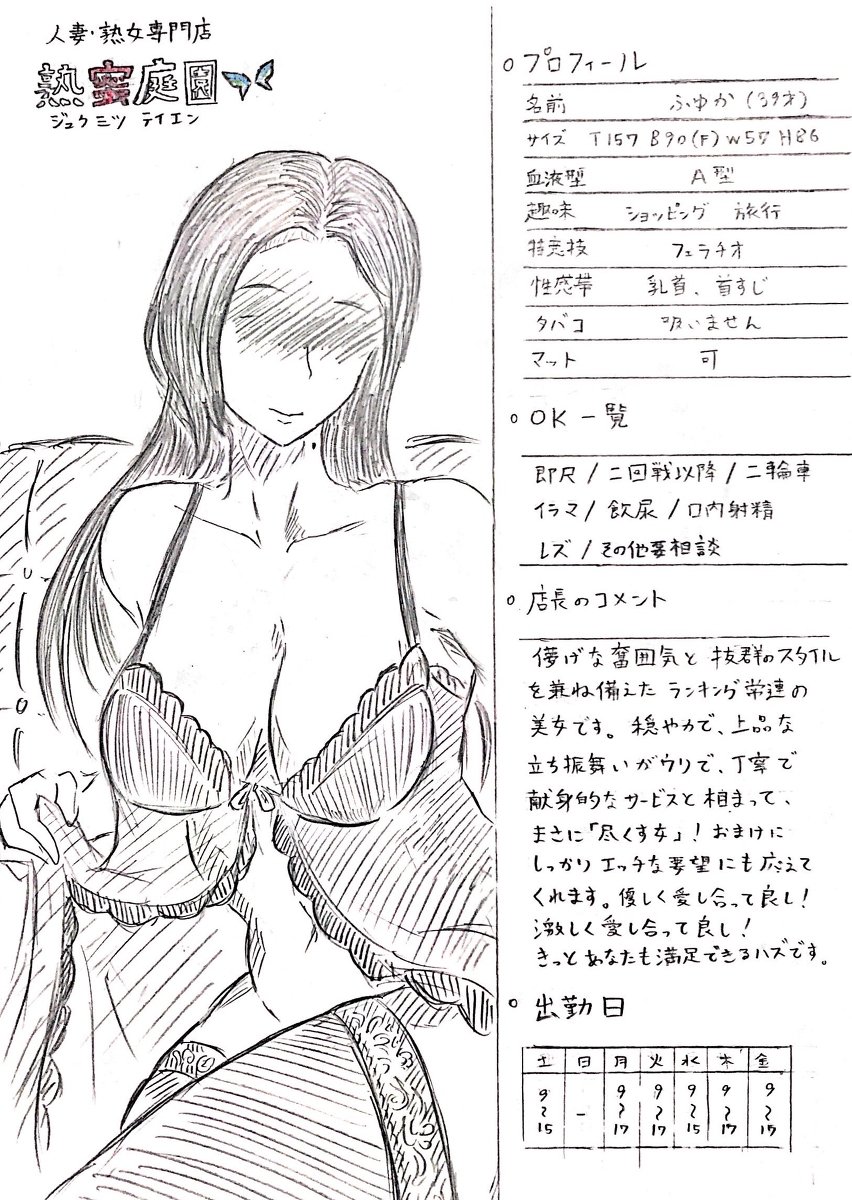 人妻・熟女専門店
熟蜜庭園
ジュクミツ テイエン
○プロフィール
名前 ふゆか(39才)
サイズ T157 B90(F) W57 H86
血液型 A型
趣味 ショッピング 旅行
特意技 フェラチオ
性感帯 乳首、首すじ
タバコ 吸いません
マット 可
○OK一覧
即尺/二回戦以降/二輪車
イラマ/飲尿/口内射精
レズ/その他要相談
○店長のコメント
儚げな雰囲気と抜群のスタイル
を兼ね備えたランキング常連の
美女です。穏やかで、上品な
立ち振舞いがウリで、丁寧で
献身的なサービスと相まって、
まさに「尽くす女」!おまけに
しっかりエッチな要望にも応えて
くれます。優しく愛し合って良し!
激しく愛し合って良し!
きっとあなたも満足できるハズです。
○出勤日
土 日 月 火 水 木 金
9〜15 - 9〜17 9〜17 9〜15 9〜17 9〜17